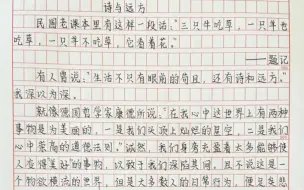 诗与远方
民国老课本里有这样一段话:“三只牛吃草,一只羊也
吃草,一只羊不吃草,它看着花。”
——题记
有人曾说:“生活不只有眼前的苟且,还有诗和远方。”
我深以为深。
就像德国哲学家康德所说:“在我心中这世界上有两种
事物是为美丽的,一是我们头顶上灿烂的星空,二是我们心
中崇高的道德法则。”诚然,我们身旁充盈着太多能够使
人觉得美好的事物,以致于我们深陷其间,且不说这是一
个物欲横流的世界,但是大多数人的日常行为,便足